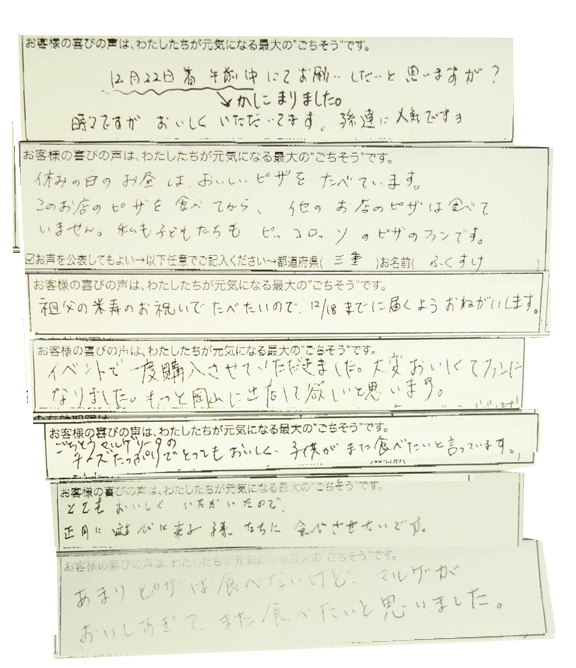 お客様の喜びの声は、わたしたちが元気になる最大の"ごちそう"です。
12月22日着 午前中にてお願いしたいと思いますが?
かしこまりました。
時々ですが おいしく いただいてます。孫達に人気ですヨ
お客様の喜びの声は、わたしたちが元気になる最大の"ごちそう"です。
休みの日の お昼は、おいしいピザを たべています。
このお店の ピザを 食べてから、他の お店のピザは食べて
いません。私も子どもたちも ピッコロッソのピザのファンです。
☑お声を公表してもよい→以下任意でご記入ください→都道府県( 三重 )お名前( ふくすけ )
お客様の喜びの声は、わたしたちが元気になる最大の"ごちそう"です。
祖父の米寿のお祝いでたべたいので、12/18 までに届くようおねがいします。
お客様の喜びの声は、わたしたちが元気になる最大の"ごちそう"です。
イベントで一度購入させていただきました。大変おいしくてファンに
なりました。もっと岡山に出店して欲しいと思います。
お客様の喜びの声は、わたしたちが元気になる最大の"ごちそう"です。
ごちそうマルゲリータの
チーズたっぷりでとってもおいしく 子供がまた食べたいと言っています。
お客様の喜びの声は、わたしたちが元気になる最大の"ごちそう"です。
とても おいしく いただいたので、
正月に 遊びに来る 孫たちに 食べさせたいです。
お客様の喜びの声は、わたしたちが元気になる最大の"ごちそう"です。
あまり ピザは食べないけど、マルゲが
おいしすぎて、また食べたいと思いました。